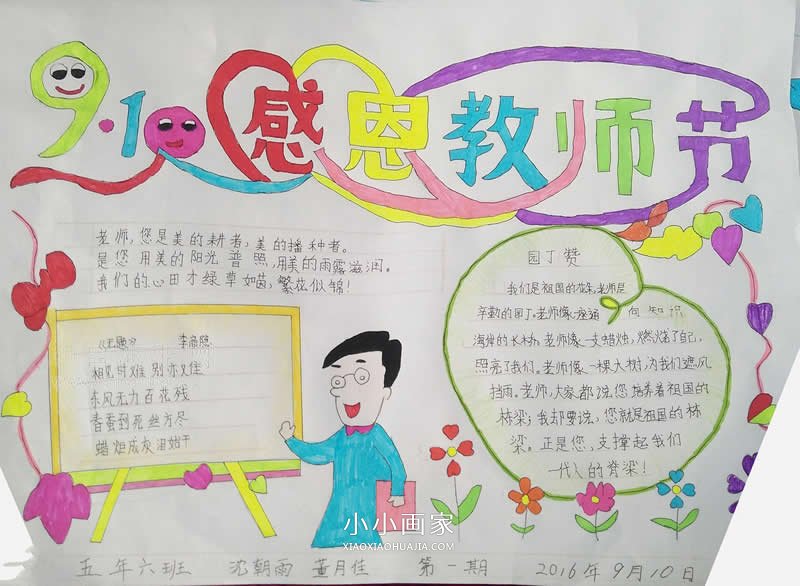 9.10 感恩教师节
老师,您是美的耕者,美的播种者。
是您用美的阳光普照,用美的雨露滋润。
我们的心田才绿草如茵,繁花似锦!
《无题》 李商隐
相见时难别亦难
东风无力百花残
春蚕到死丝方尽
蜡炬成灰泪始干
园丁赞
我们是祖国的花朵,老师是
辛勤的园丁。老师像一座通向知识
海岸的长桥。老师像一支蜡烛,燃烧了自己,
照亮了我们。老师像一棵大树,为我们遮风
挡雨。老师,大家都说,您培养着祖国的
栋梁;我却要说,您就是祖国的栋
梁。正是您,支撑起我们
一代人的脊梁!
小小画家
XIAOXIAOHUAJIA.COM
五年六班 沈朝雨 董月佳 第一期 2016年9月10日